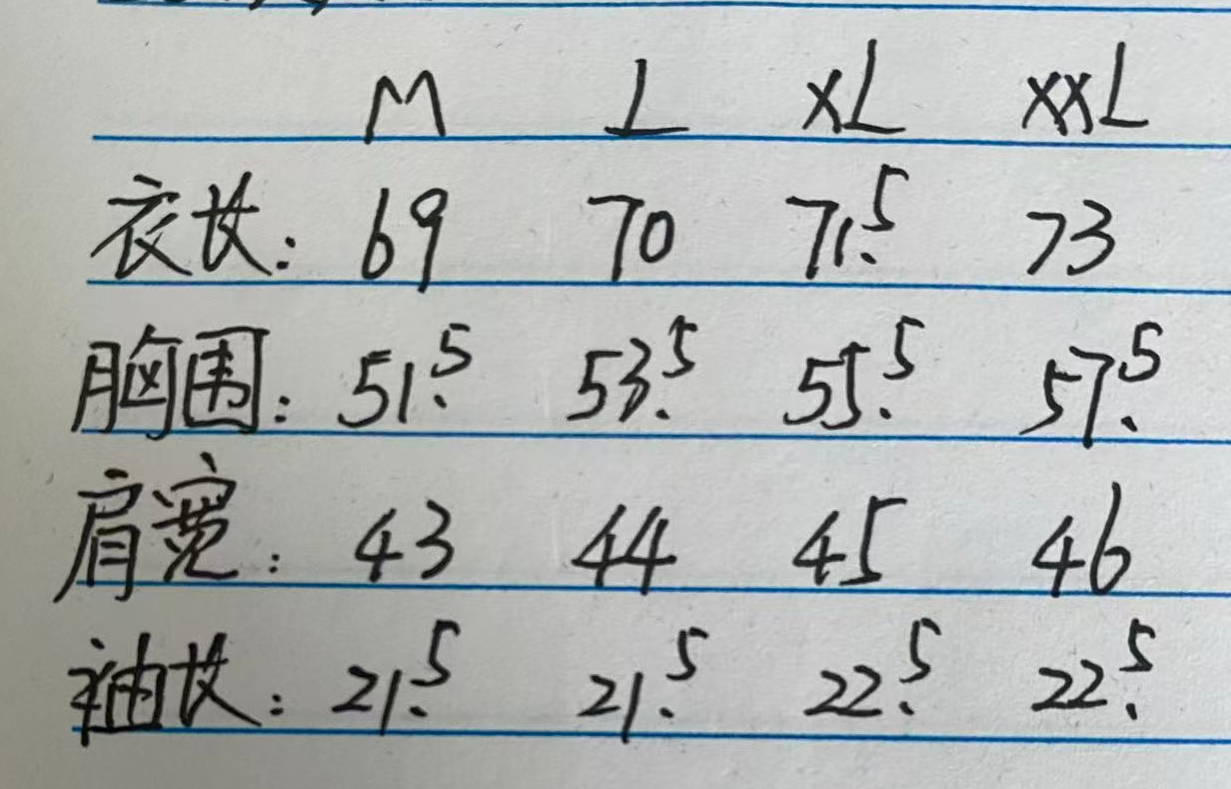 M L XL XXL
衣长: 69 70 71.5 73
胸围: 51.5 53.5 55.5 57.5
肩宽: 43 44 45 46
袖长: 21.5 21.5 22.5 22.5